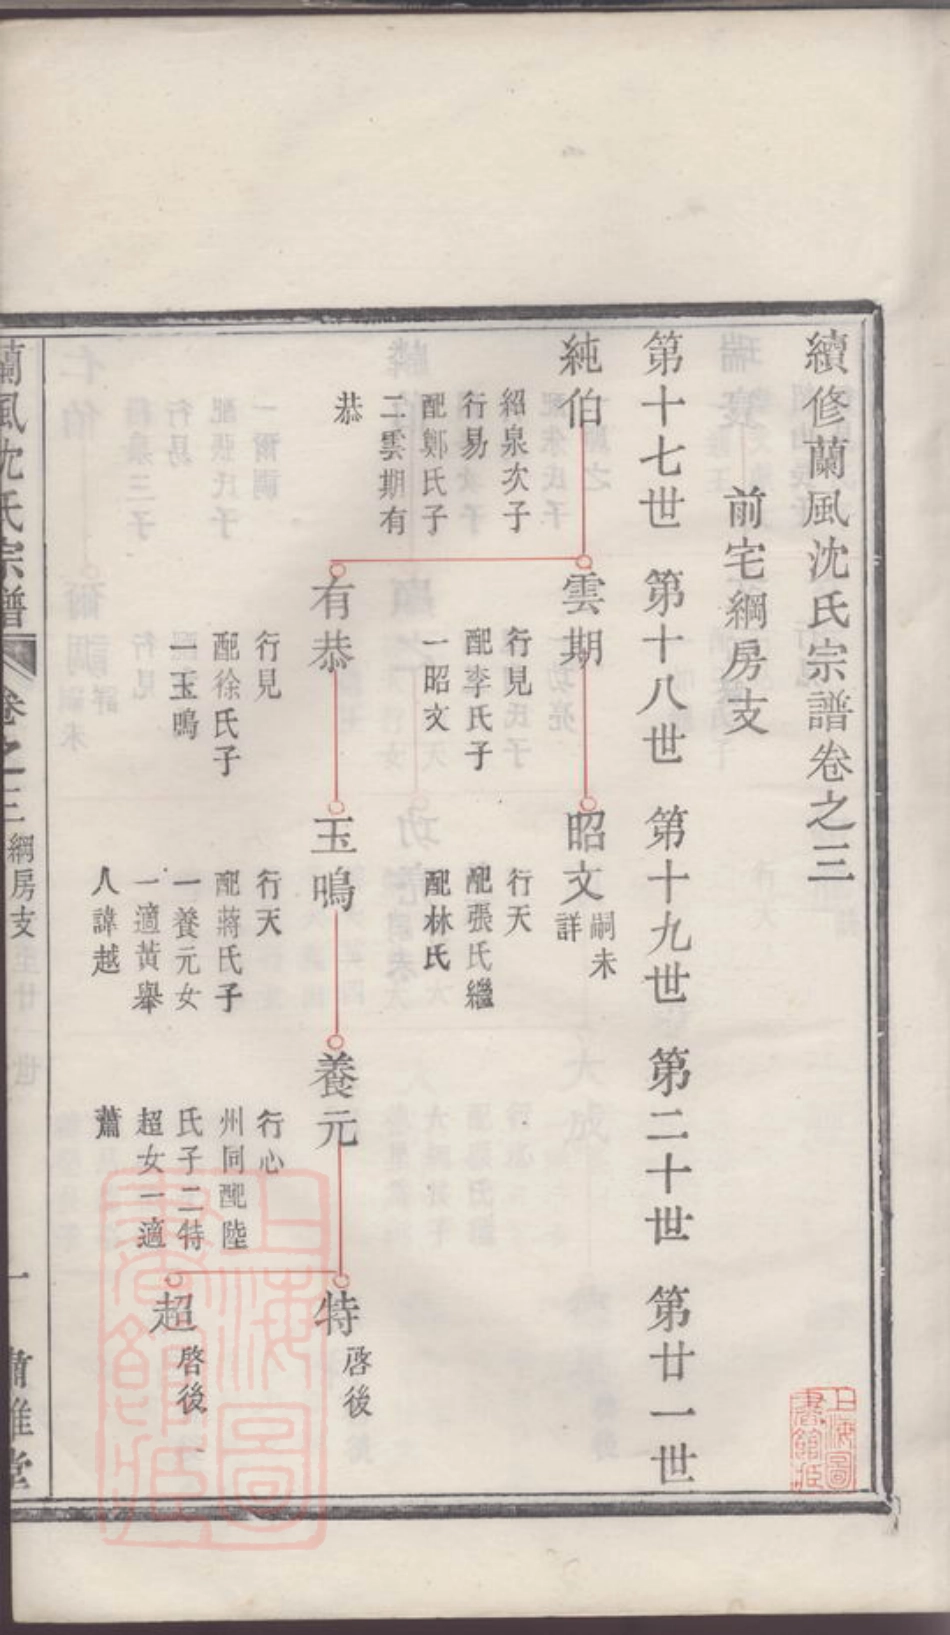 續修蘭風沈氏宗譜卷之三
前宅綱房支
第十七世
第十八世
第十九世
第二十世
第廿一世
純伯
紹泉次子
行易
配鄭氏子
二雲期有
恭
雲期
行見
配李氏子
一昭文
昭文
嗣未
詳
行天
配張氏繼
配林氏
有恭
行見
配徐氏子
一玉鳴
玉鳴
行天
配蔣氏子
一養元女
一適黃舉
人諱越
養元
行心
州同配陸
氏子二特
超女一適
蕭
特
啓後
超
啓後
蘭風沈氏宗譜
卷之三
綱房支
一
肅雝堂
上海圖
書館藏
上海圖
書館藏